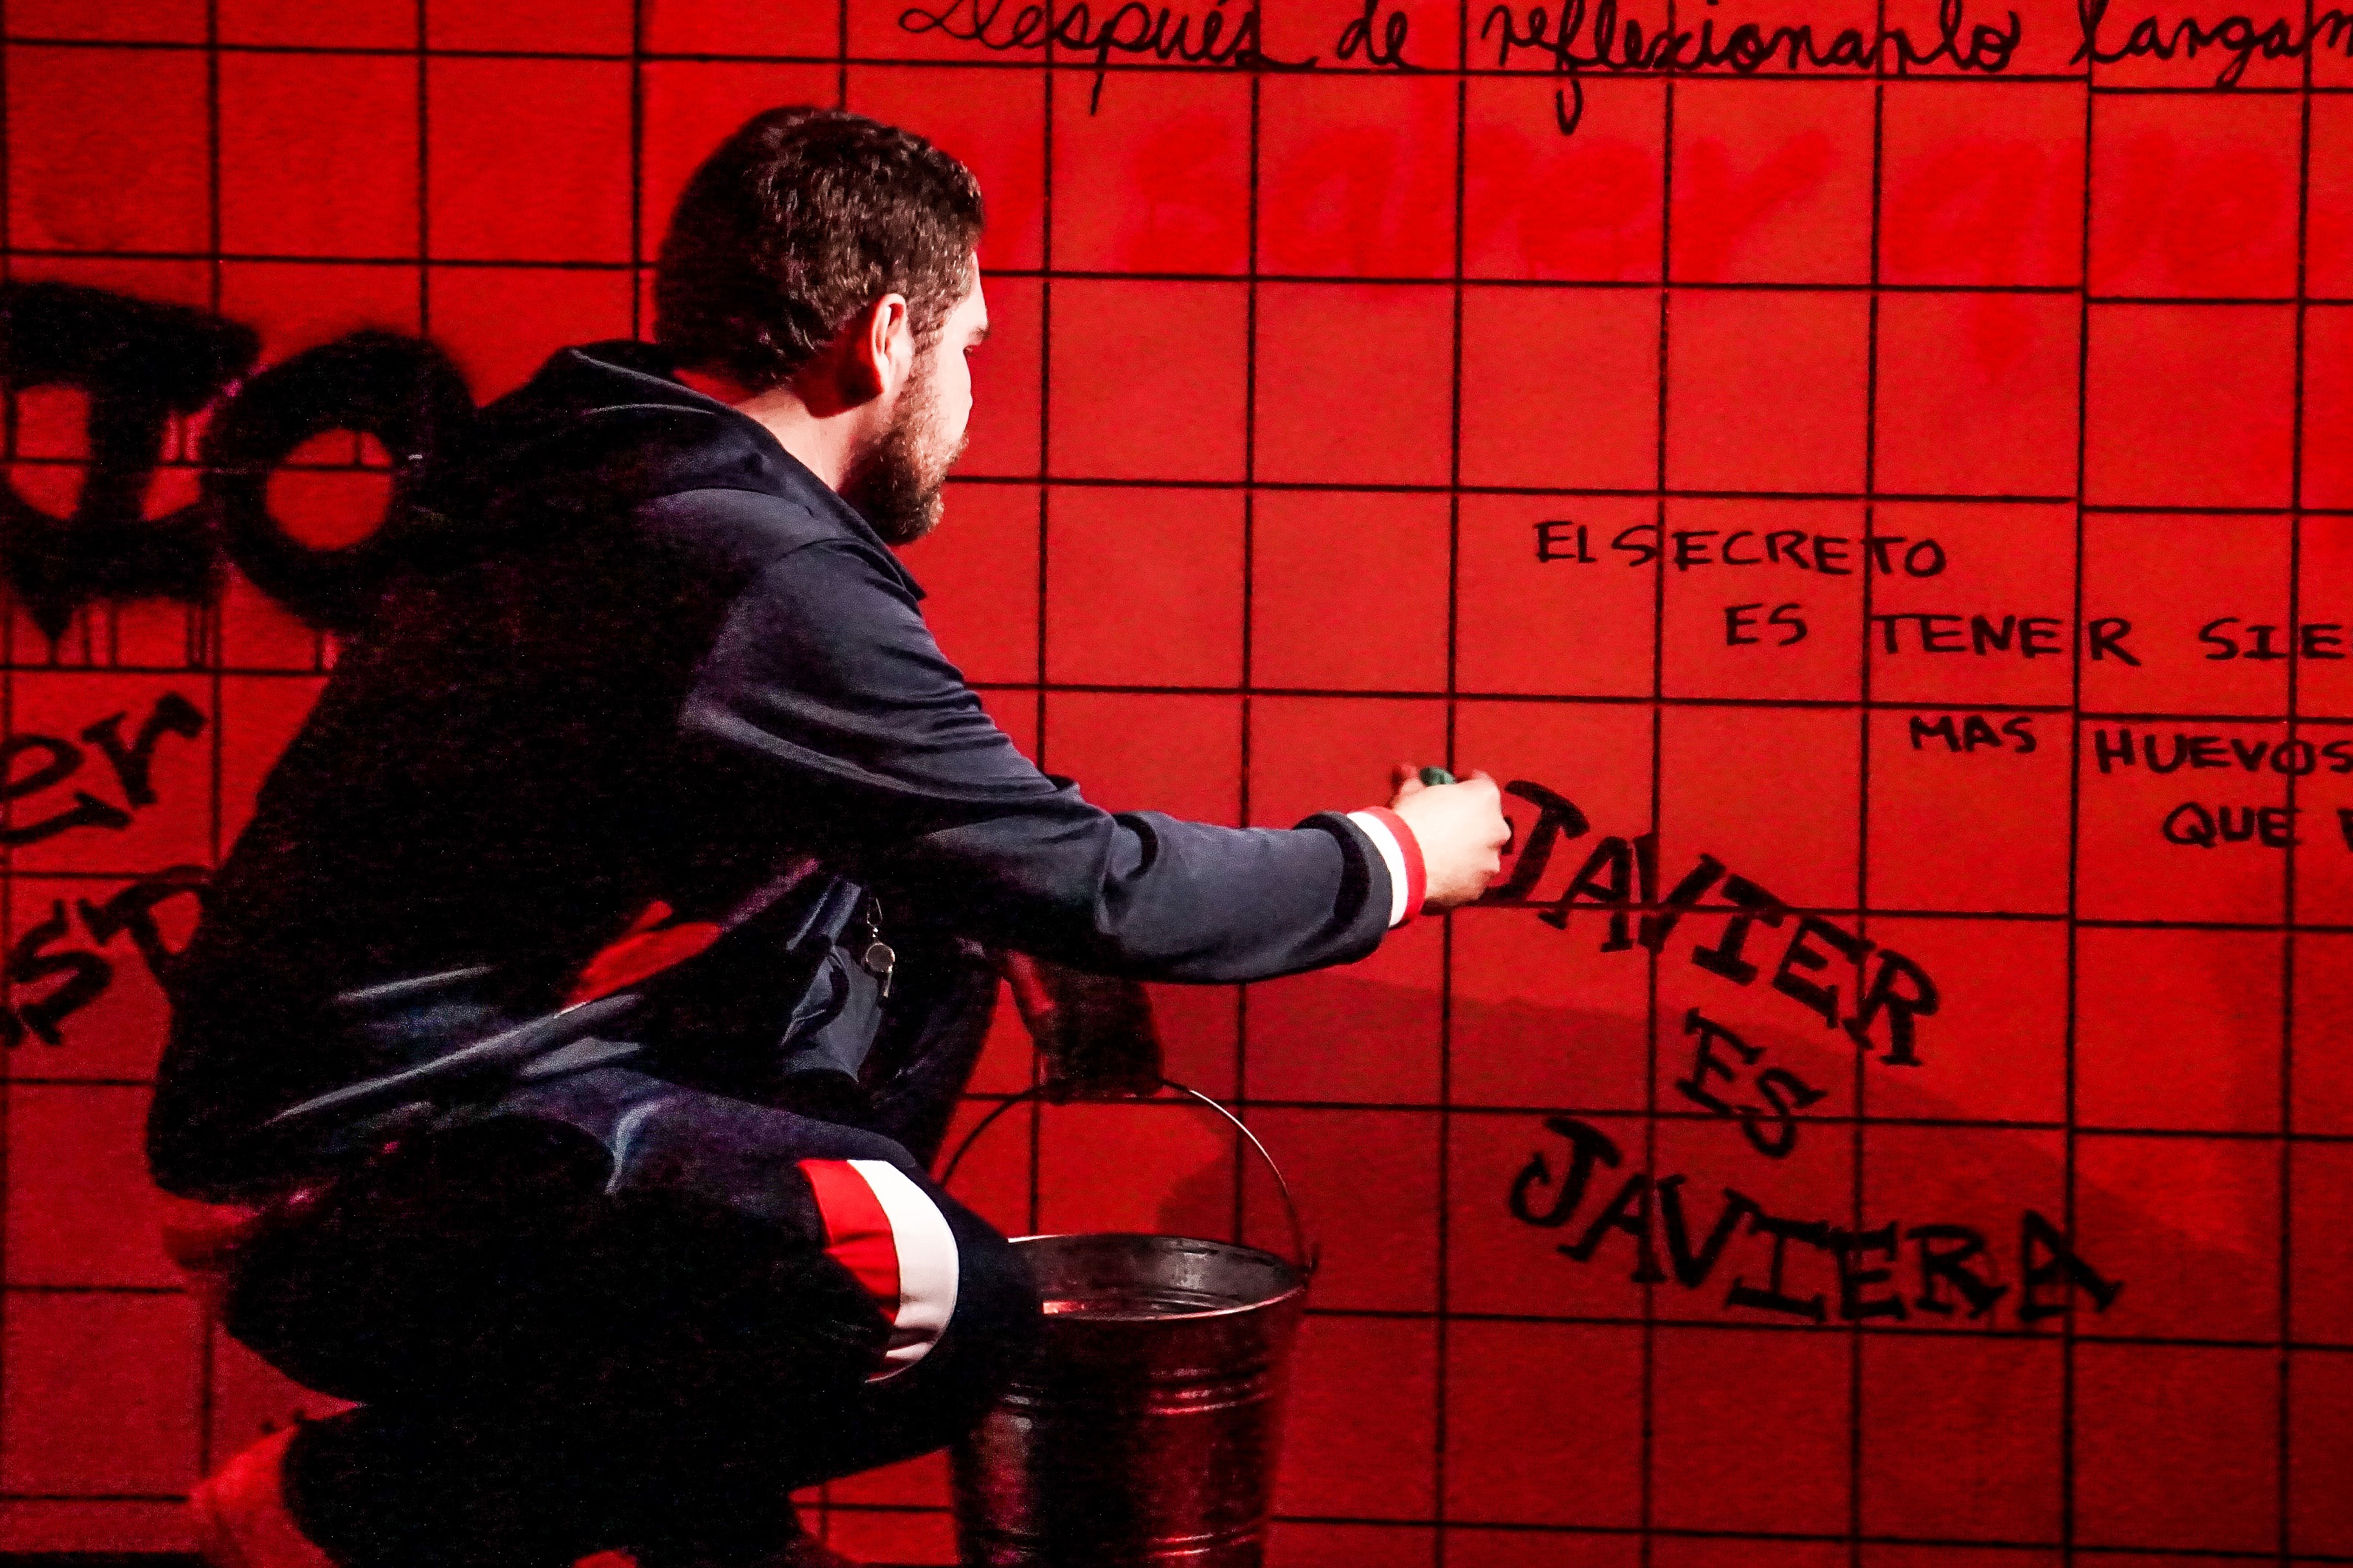 Después de reflexionarlo
EL SECRETO
ES TENER
MAS HUEVOS
QUE
JAVIER
ES
JAVIERA
TO
er